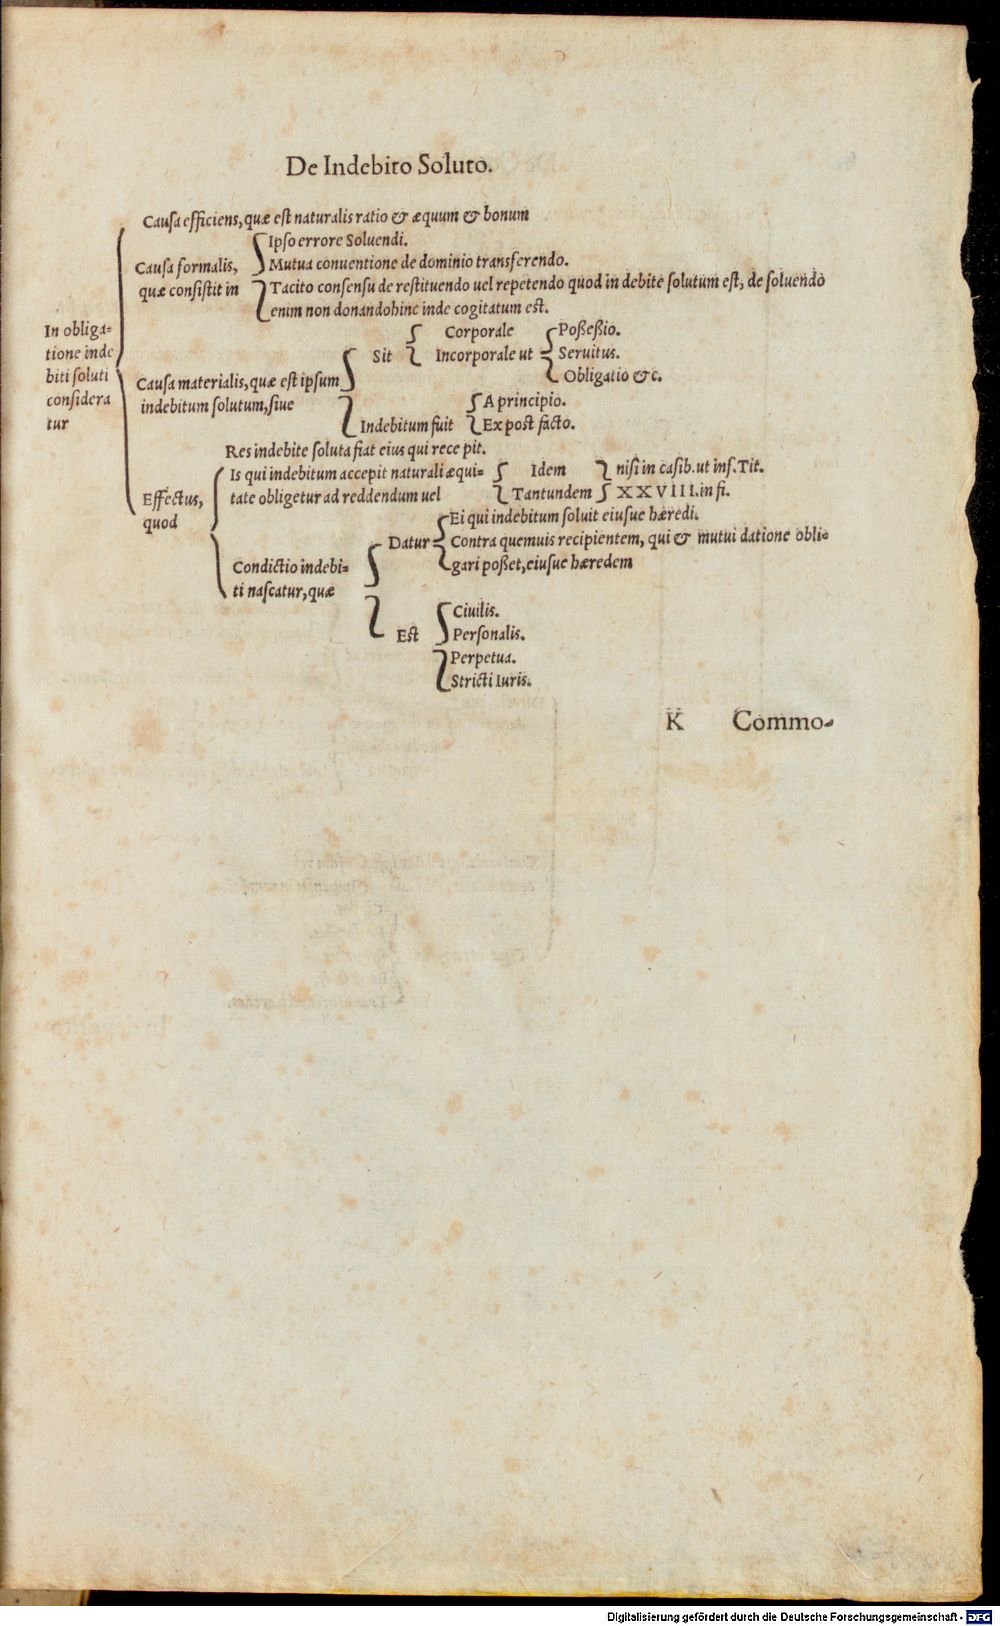 De Indebito Soluto.
Causa efficiens, quæ est naturalis ratio & æquum & bonum
Ipso errore Soluendi.
Causa formalis,
Mutua conuentione de dominio transferendo.
quæ consistit in
Tacito consensu de restituendo uel repetendo quod indebitè solutum est, de soluendo
enim non donandohinc inde cogitatum est.
In obliga=
tione inde
biti soluti
considera
tur
Sit
Corporale
Incorporale ut
Poßeßio.
Seruitus.
Obligatio &c.
Causa materialis, quæ est ipsum
indebitum solutum, siue
Indebitum fuit
A principio.
Ex post facto.
Effectus,
quod
Res indebite soluta fiat eius qui recepit.
Is qui indebitum accepit naturali æqui=
tate obligetur ad reddendum uel
Idem
Tantundem
nisi in casib. ut inf. Tit.
XXVIII. in fi.
Condictio indebi=
ti nascatur, quæ
Datur
Ei qui indebitum soluit eiusue hæredi.
Contra quemuis recipientem, qui & mutui datione obli=
gari poßet, eiusue hæredem
Est
Ciuilis.
Personalis.
Perpetua.
Stricti Iuris.
K Commo=
Digitalisierung gefördert durch die Deutsche Forschungsgemeinschaft - DFG